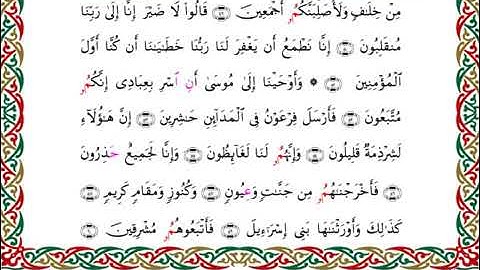 مِنْ خِلَٰفٍ وَلَأُصَلِّبَنَّكُمُۥ أَجْمَعِينَ ۝ قَالُوا۟ لَا ضَيْرَ إِنَّا إِلَىٰ رَبِّنَا
مُنقَلِبُونَ ۝ إِنَّا نَطْمَعُ أَن يَغْفِرَ لَنَا رَبُّنَا خَطَٰيَٰنَا أَن كُنَّا أَوَّلَ
ٱلْمُؤْمِنِينَ ۝ ۞ وَأَوْحَيْنَا إِلَىٰ مُوسَىٰ أَنِ ٱسْرِ بِعِبَادِى إِنَّكُمُۥ
مُتَّبَعُونَ ۝ فَأَرْسَلَ فِرْعَوْنُ فِى ٱلْمَدَآئِنِ حَٰشِرِينَ ۝ إِنَّ هَٰٓؤُلَآءِ
لَشِرْذِمَةٌ قَلِيلُونَ ۝ وَإِنَّهُمُۥ لَنَا لَغَآئِظُونَ ۝ وَإِنَّا لَجَمِيعٌ حَذِرُونَ
۝ فَأَخْرَجْنَٰهُمُۥ مِن جَنَّٰتٍ وَعِيُونٍ ۝ وَكُنُوزٍ وَمَقَامٍ كَرِيمٍ ۝
كَذَٰلِكَ وَأَوْرَثْنَٰهَا بَنِىٓ إِسْرَٰٓءِيلَ ۝ فَأَتْبَعُوهُمُۥ مُشْرِقِينَ ۝